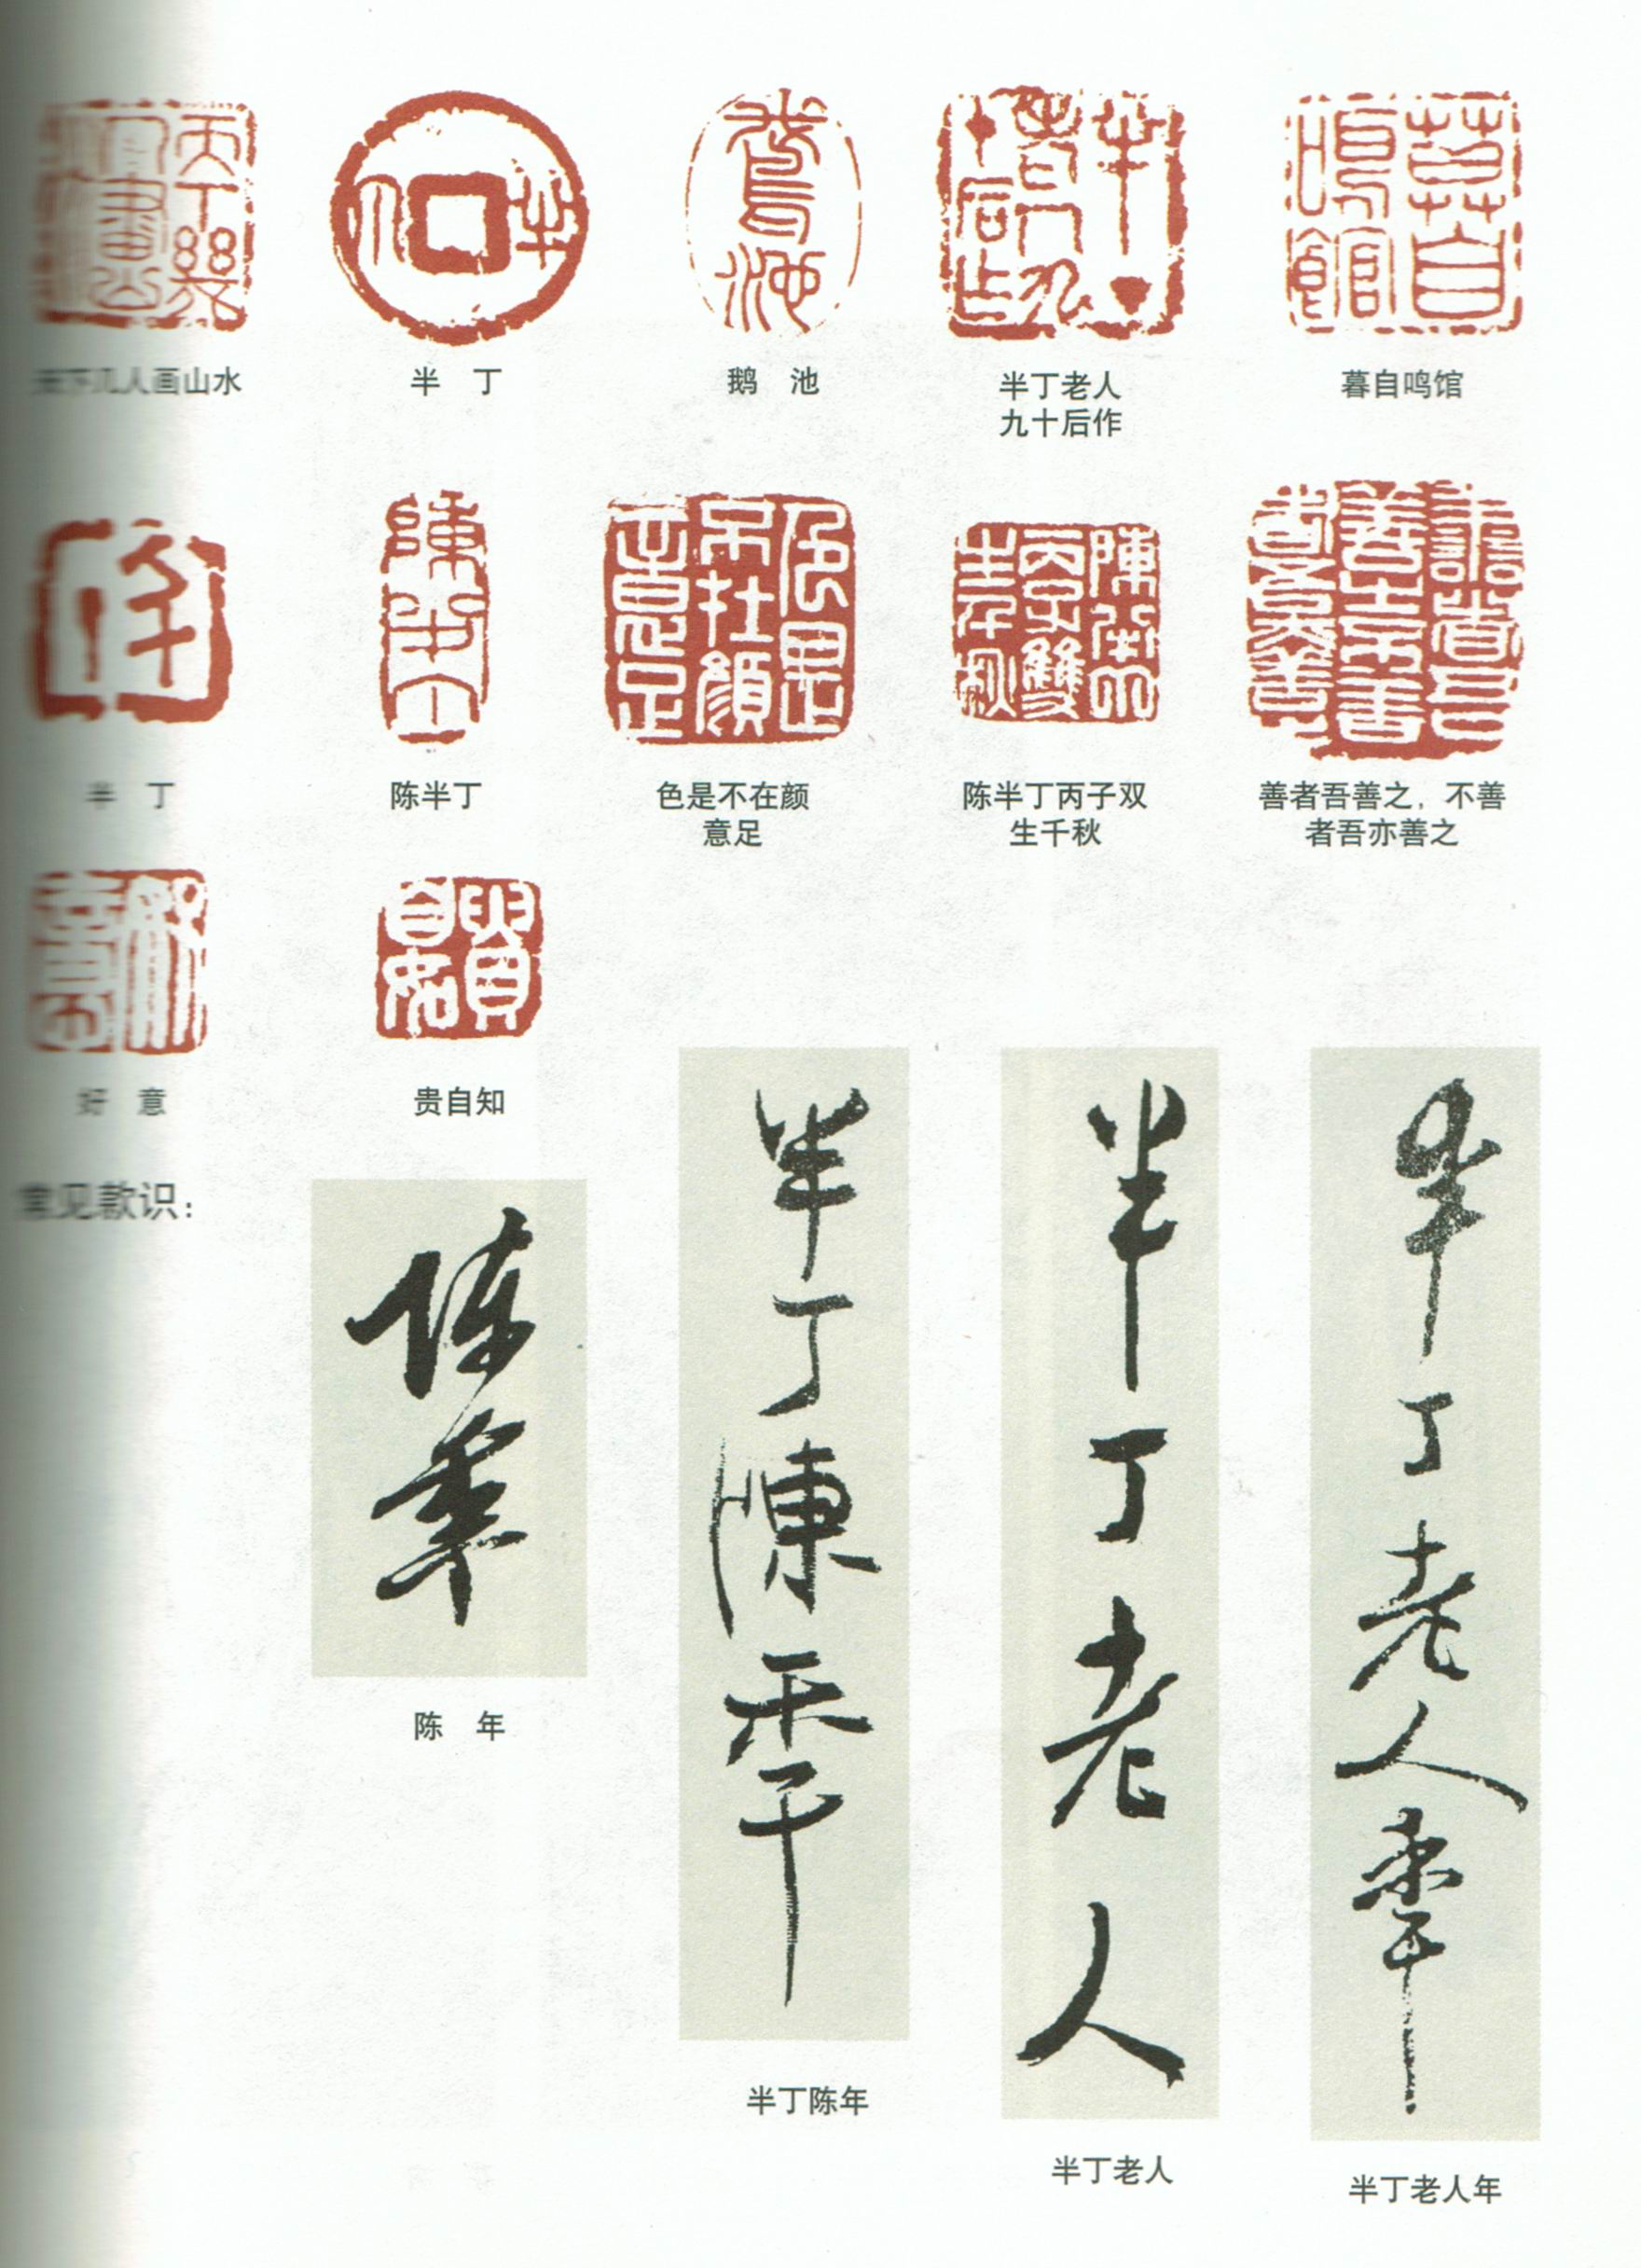 天下几人画山水
半 丁
鹅 池
半丁老人
九十后作
暮自鸣馆
半 丁
陈半丁
色是不在颜
意足
陈半丁丙子双
生千秋
善者吾善之，不善
者吾亦善之
好 意
贵自知
常见款识：
陈年
陈 年
半丁陳年
半丁陈年
半丁老人
半丁老人
半丁老人年
半丁老人年